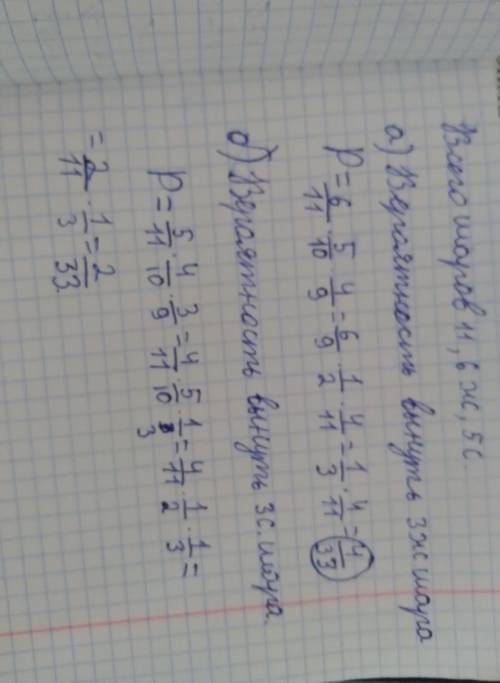 Всего шаров 11, 6 ж, 5 с.
а) Вероятность вынуть 3 ж шара
P = 6/11 · 5/10 · 4/9 = 6/9 · 1/2 · 4/11 = 1/3 · 4/11 = 4/33
б) Вероятность вынуть 3 с. шара.
P = 5/11 · 4/10 · 3/9 = 4/11 · 5/10 · 1/3 = 4/11 · 1/2 · 1/3 =
= 2/11 · 1/3 = 2/33